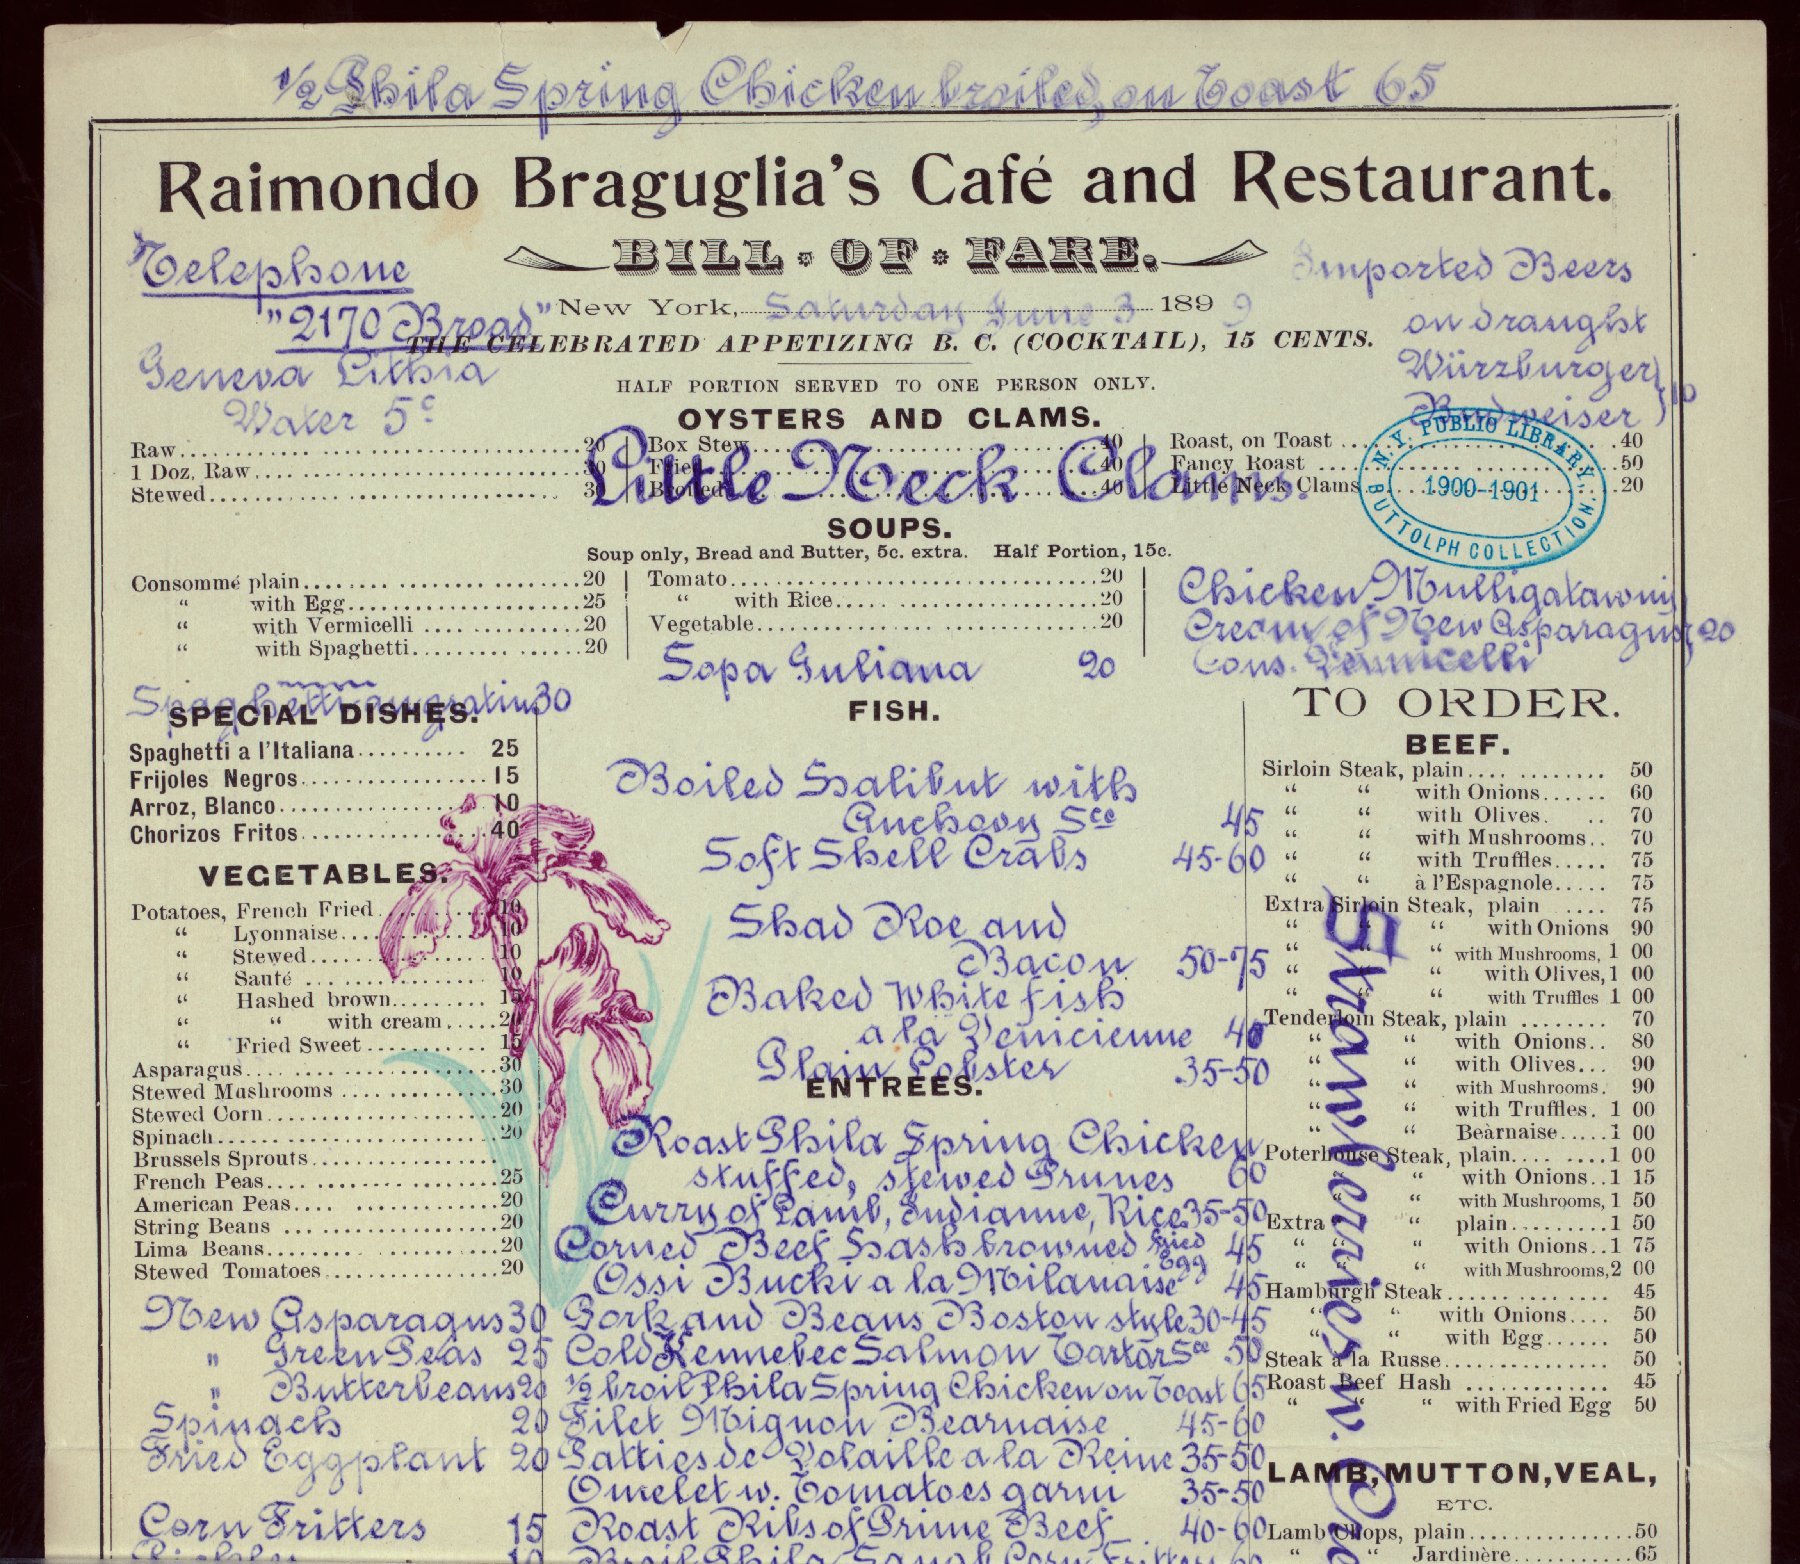 ½ Phila Spring Chicken broiled, on Toast 65
Raimondo Braguglia's Café and Restaurant.
BILL OF FARE.
Telephone
"2170 Broad"
Geneva Lithia
Water 5c
New York, Saturday June 3 1899
Imported Beers
on draught
Würzburger
Budweiser } 10
THE CELEBRATED APPETIZING B. C. (COCKTAIL), 15 CENTS.
HALF PORTION SERVED TO ONE PERSON ONLY.
OYSTERS AND CLAMS.
Raw 20
1 Doz. Raw 30
Stewed 30
Box Stew 40
Fried 40
Broiled 40
Roast, on Toast 40
Fancy Roast 50
Little Neck Clams 20
Little Neck Clams.
N.Y. PUBLIC LIBRARY.
1900-1901
BUTTOLPH COLLECTION.
SOUPS.
Soup only, Bread and Butter, 5c. extra. Half Portion, 15c.
Consommé plain 20
" with Egg 25
" with Vermicelli 20
" with Spaghetti 20
Tomato 20
" with Rice 20
Vegetable 20
Sopa Guliana 20
Chicken Mulligatawny
Cream of New Asparagus } 20
Cons. Vermicelli
Spaghetti au gratin 30
SPECIAL DISHES.
Spaghetti a l'Italiana 25
Frijoles Negros 15
Arroz, Blanco 10
Chorizos Fritos 40
VEGETABLES.
Potatoes, French Fried 10
" Lyonnaise 10
" Stewed 10
" Sauté 10
" Hashed brown 15
" " with cream 20
" Fried Sweet 15
Asparagus 30
Stewed Mushrooms 30
Stewed Corn 20
Spinach 20
Brussels Sprouts
French Peas 25
American Peas 20
String Beans 20
Lima Beans 20
Stewed Tomatoes 20
New Asparagus 30
" Green Peas 25
" Butterbeans 20
Spinach 20
Fried Eggplant 20
Corn Fritters 15
FISH.
Boiled Halibut with
Anchovy Sce 45
Soft Shell Crabs 45-60
Shad Roe and
Bacon 50-75
Baked White fish
a la Venicienne 40
Plain Lobster 35-50
ENTREES.
Roast Phila Spring Chicken
stuffed, stewed Prunes 60
Curry of Lamb, Indianne, Rice 35-50
Corned Beef Hash browned fried Egg 45
Ossi Bucki a la Milanaise 45
Pork and Beans Boston style 30-45
Cold Kennebec Salmon Tartar Sce 50
½ broil Phila Spring Chicken on Toast 65
Filet Mignon Bearnaise 45-60
Patties de Volaille a la Reine 35-50
Omelet w. Tomatoes garni 35-50
Roast Ribs of Prime Beef 40-60
TO ORDER.
BEEF.
Sirloin Steak, plain 50
" " with Onions 60
" " with Olives 70
" " with Mushrooms 70
" " with Truffles 75
" " à l'Espagnole 75
Extra Sirloin Steak, plain 75
" " " with Onions 90
" " " with Mushrooms, 1 00
" " " with Olives, 1 00
" " " with Truffles 1 00
Tenderloin Steak, plain 70
" " with Onions 80
" " with Olives 90
" " with Mushrooms 90
" " with Truffles 1 00
" " Beàrnaise 1 00
Poterhouse Steak, plain 1 00
" " with Onions 1 15
" " with Mushrooms, 1 50
Extra " " plain 1 50
" " " with Onions 1 75
" " " with Mushrooms, 2 00
Hamburgh Steak 45
" " with Onions 50
" " with Egg 50
Steak a la Russe 50
Roast Beef Hash 45
" " " with Fried Egg 50
LAMB, MUTTON, VEAL,
ETC.
Lamb Chops, plain 50
" " Jardinère 65
Strawberries w.